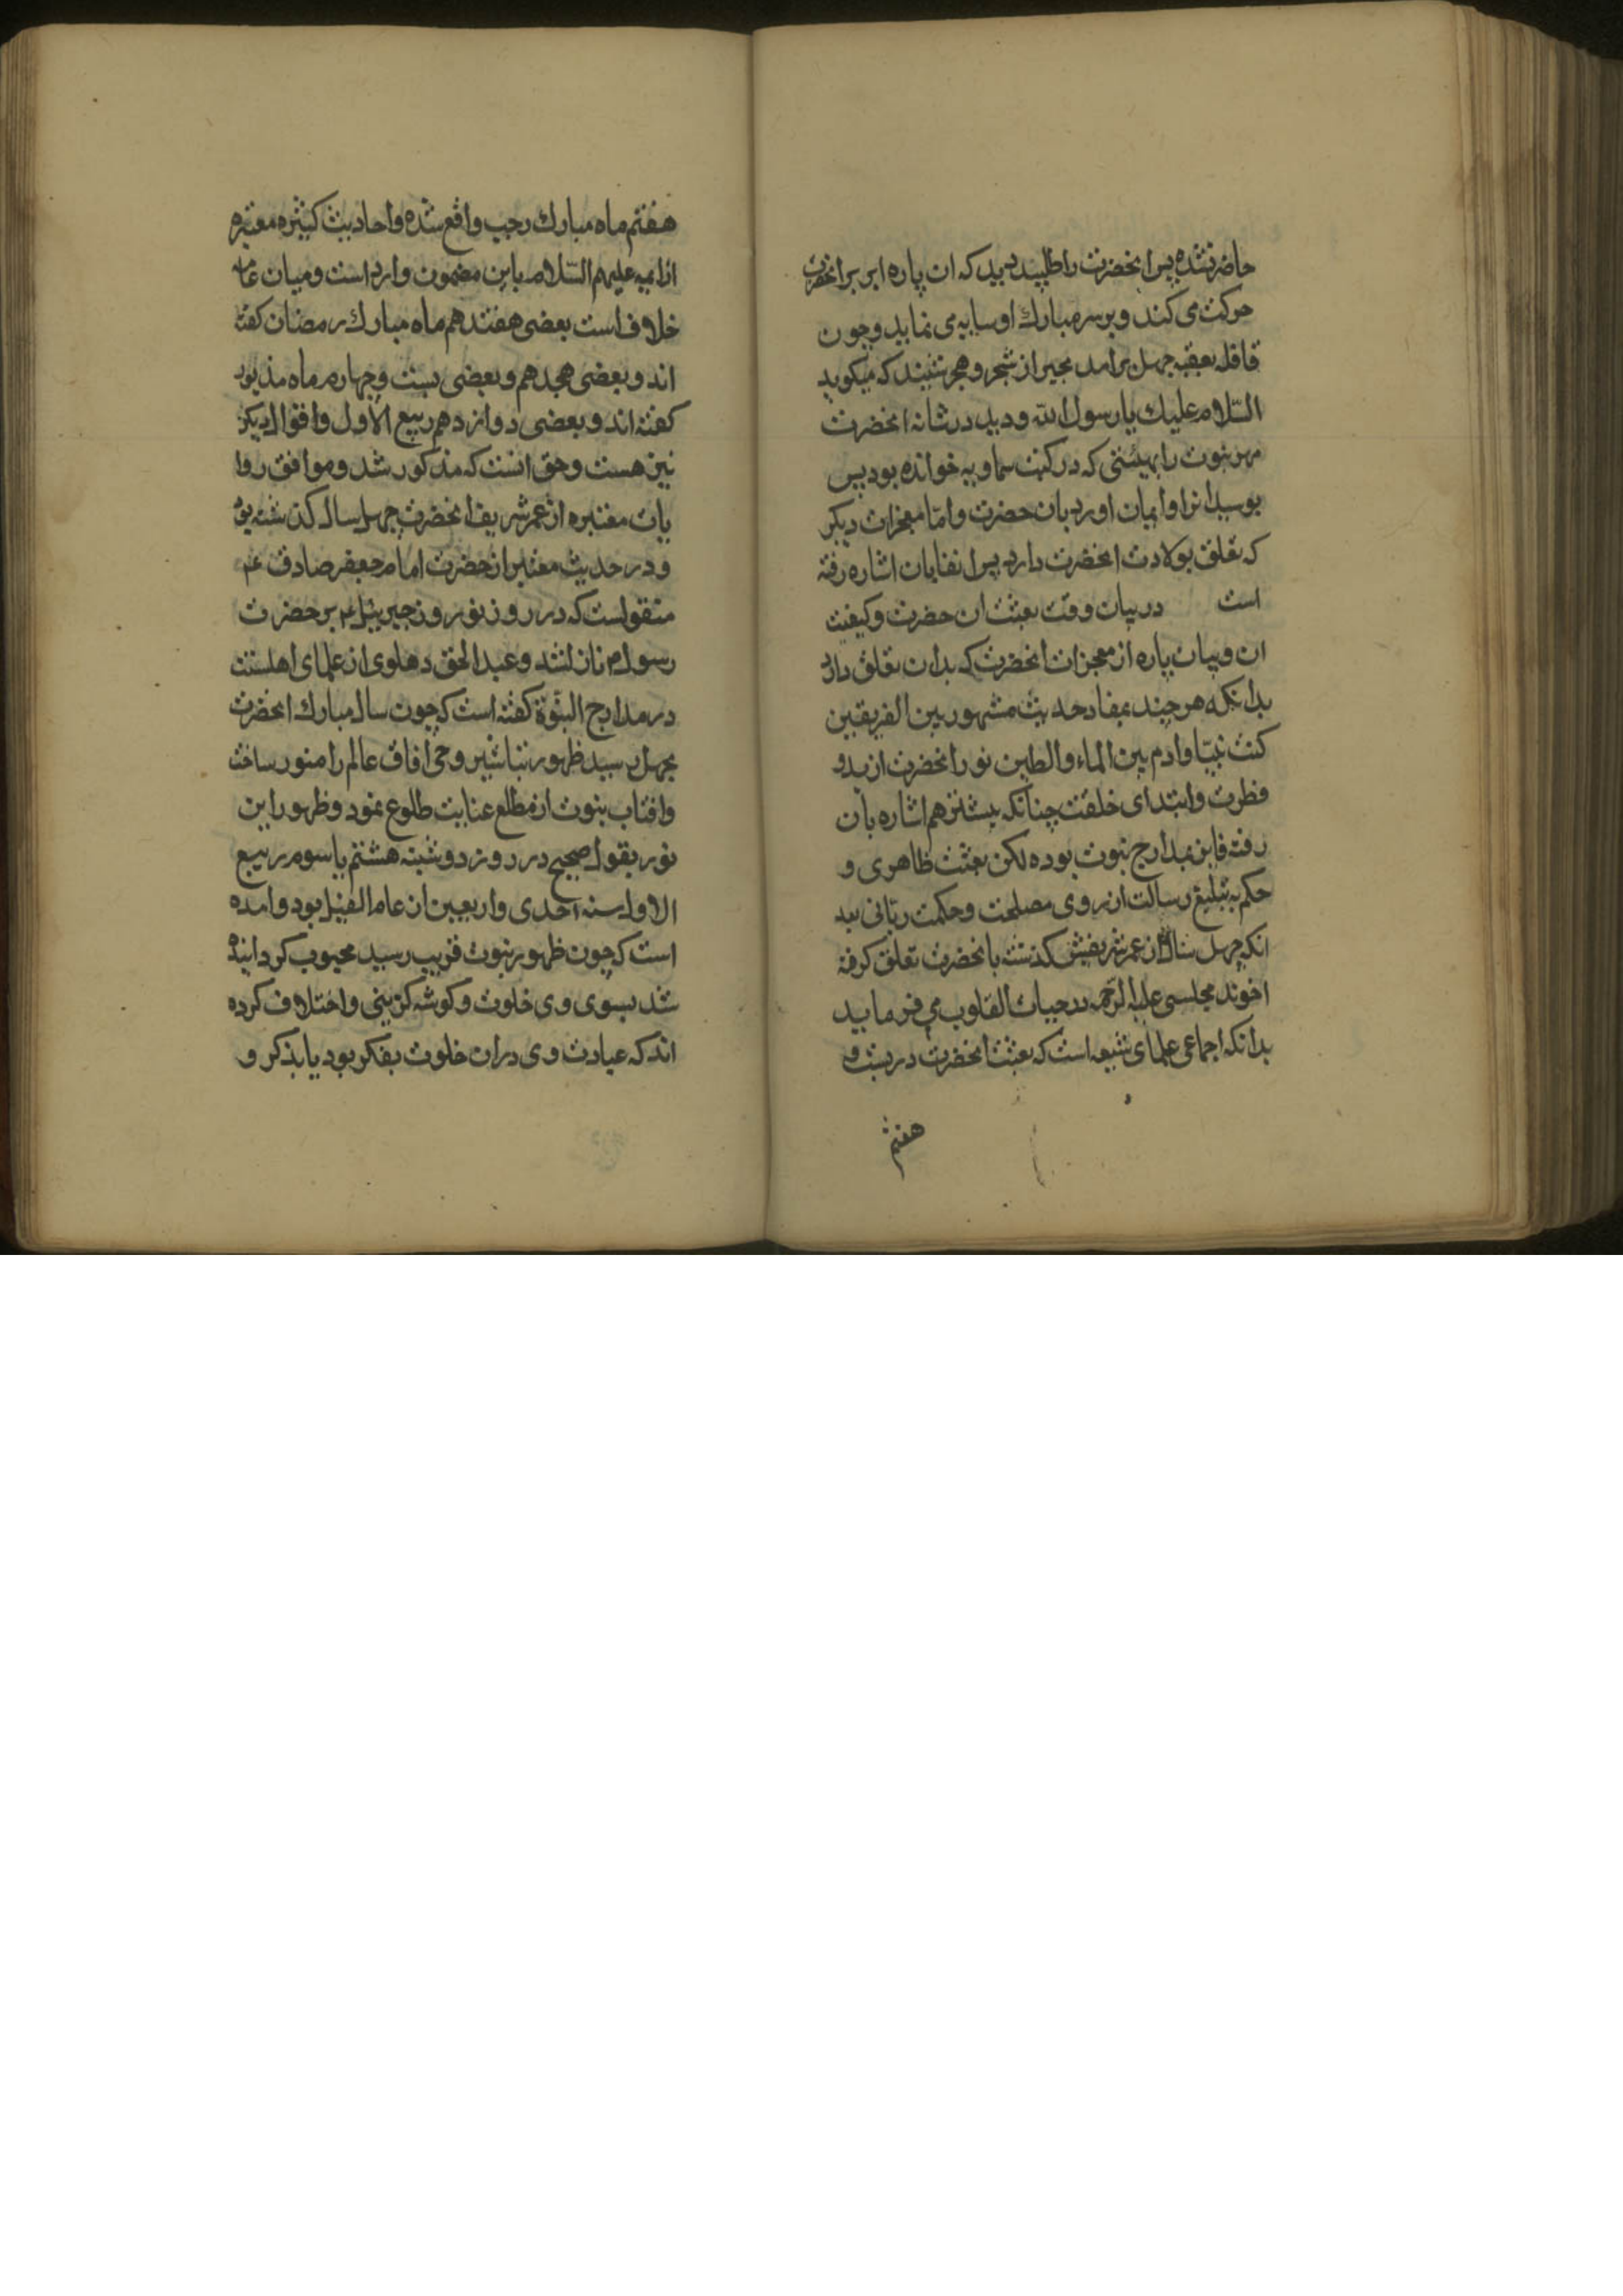 حاضر نشده پس انحضرت را طلبید دید که ان پاره ابر بر انحضرت
حرکت می کند و بر سر مبارك او سایه می نماید و چون
قافله بعقبه جهل برامد بحیر از شجر و حجر شنید که میکوید
السّلام علیك یا رسول الله و دید در شانه انحضرت
مهر نبوت را بهیئتی که در کتب سماویه خوانده بود پس
بوسید انرا و ایمان اورد بان حضرت و امّا معجزات دیکر
که تعلق بولادت انحضرت دارد پس انفا بان اشاره رفته
است در بیان وقت بعثت ان حضرت و کیفیت
ان و بیان پاره از معجزات انحضرت که بدان تعلق دارد
بدانکه هر چند بمفاد حدیث مشهور بین الفریقین
کنت نبیّا و ادم بین الماء و الطین نور انحضرت از بدو
فطرت و ابتدای خلقت چنانکه پیشتر هم اشاره بان
رفته فایز بمدارج نبوت بوده لکن بعثت ظاهری و
حکم به تبلیغ رسالت از روی مصلحت و حکمت ربّانی بعد
انکه چهل سال از عمر شریفش کذشته بانحضرت تعلق کرفته
اخوند مجلسی علیه الرحمه در حیات القلوب می فرماید
بدانکه اجماعی علمای شیعه است که بعثت انحضرت در بیست و
هفتم
هفتم ماه مبارك رجب واقع شده و احادیث کثیره معتبره
از ایمه علیهم السّلام باین مضمون وارد است و میان عامه
خلاف است بعضی هفتدهم ماه مبارك رمضان کفته
اند و بعضی هجدهم و بعضی بیست و چهارم ماه مذبور
کفته اند و بعضی دوازدهم ربیع الاول و اقوال دیکر
نیز هست و حق انست که مذکور شد و موافق روا
یات معتبره از عمر شریف انحضرت چهل سال کذشته بود
و در حدیث معتبر از حضرت امام جعفر صادق عم
منقولست که در روز نوروز جبرییل ع بر حضرت
رسول م نازل شد و عبد الحق دهلوی از علمای اهلسنت
در مدارج النبّوة کفته است که چون سال مبارك انحضرت
بچهل رسید ظهور تباشیر وحی افاق عالم را منور ساخت
و افتاب نبوت از مطلع عنایت طلوع نمود و ظهور این
نور بقول صحیح در روز دوشنبه هشتم یا سوم ربیع
الاول سنه احدی و اربعین از عام الفیل بود و امده
است که چون ظهور نبوت قریب رسید محبوب کردانیده
شد بسوی وی خلوت و کوشه کزینی و اختلاف کرده
اند که عبادت وی دران خلوت بفکر بود یا بذکر و